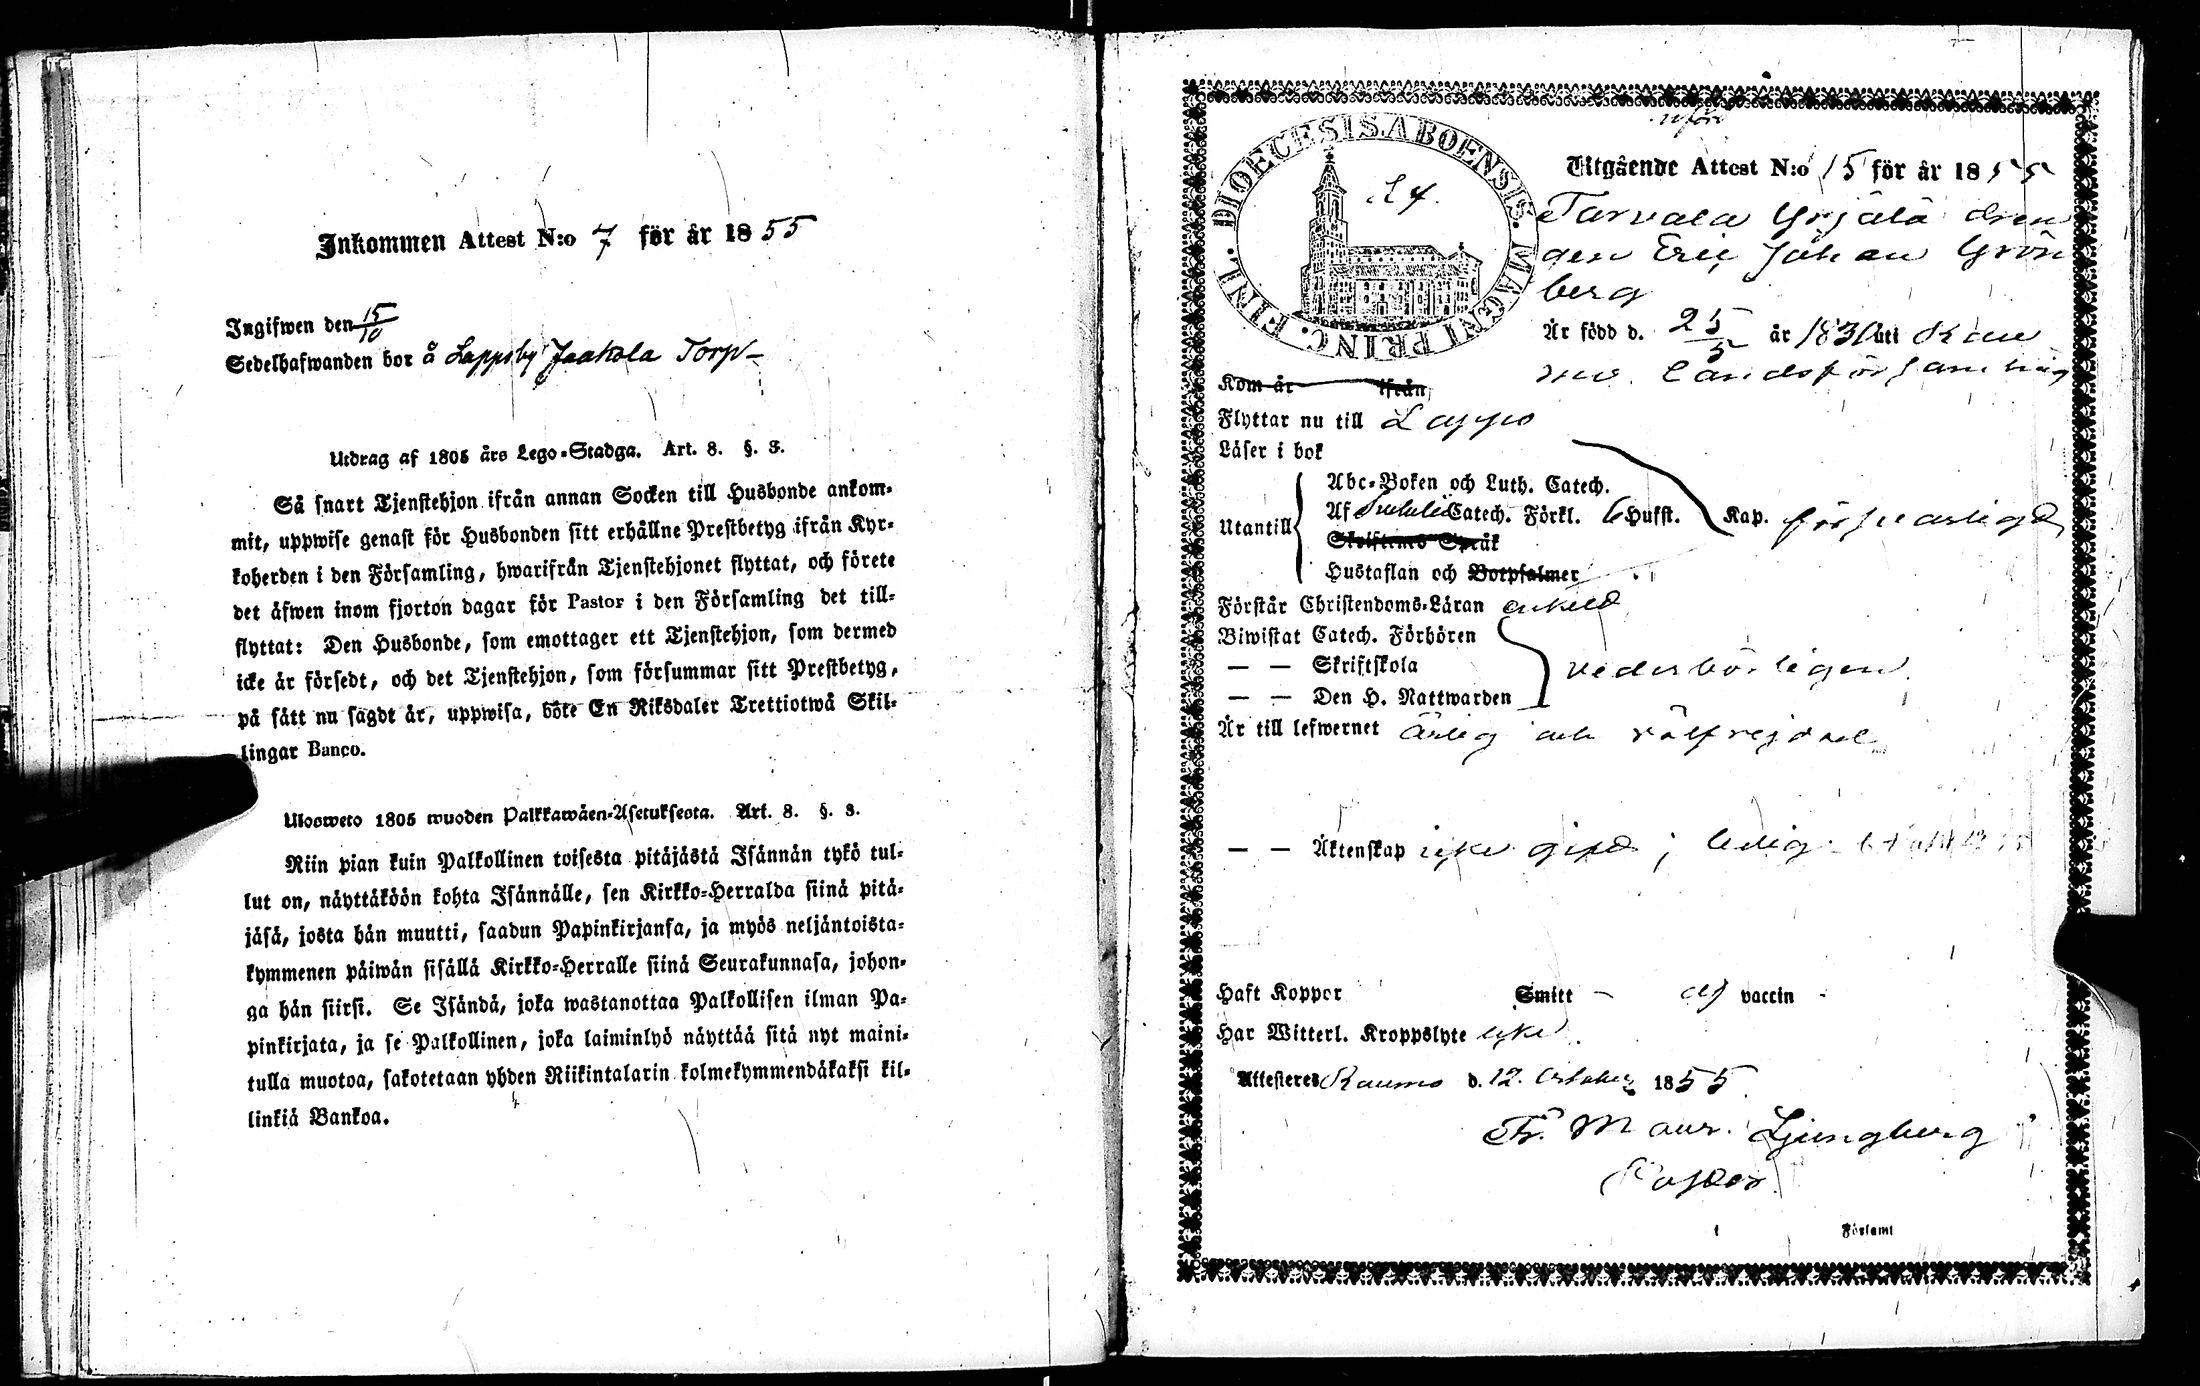 Inkommen Attest N:o 7 för år 1855
Ingifwen den 15/10
Sedelhafwanden bor å Lappsby Jaakola Torp
Utdrag af 1805 års Lego-Stadga. Art. 8. §. 3.
Så snart Tjenstehjon ifrån annan Socken till Husbonde ankom-
mit, uppwise genast för Husbonden sitt erhållne Prestbetyg ifrån Kyr-
koherden i den Församling, hwarifrån Tjenstehjonet flyttat, och förete
det äfwen inom fjorton dagar för Pastor i den Församling det till-
flyttat: Den Husbonde, som emottager ett Tjenstehjon, som dermed
icke är försedt, och det Tjenstehjon, som försummar sitt Prestbetyg,
på sätt nu sagdt är, uppwisa, böte En Riksdaler Trettiotwå Skil-
lingar Banco.
Ulosweto 1805 wuoden Palkkawäen-Asetuksesta. Art. 8. §. 3.
Niin pian kuin Palkollinen toisesta pitäjästä Isännän tykö tul-
lut on, näyttäköön kohta Isännälle, sen Kirkko-Herralda siinä pitä-
jäsä, josta hän muutti, saadun Papinkirjansa, ja myös neljäntoista-
kymmenen päiwän sisällä Kirkko-Herralle siinä Seurakunnasa, johon-
ga hän siirsi. Se Isändä, joka wastanottaa Palkollisen ilman Pa-
pinkirjata, ja se Palkollinen, joka laiminlyö näyttää sitä nyt maini-
tulla muotoa, sakotetaan yhden Riikintalarin kolmekymmendäkaksi kil-
linkiä Bankoa.
DIOECESIS ABOENSIS. MAGNI PRINC. FINL.
Utgående Attest N:o 15 för år 1855
Tarvala Yrjälä dren
gen Eric Johan Grön
berg
Är född d. 25/5 år 1830 uti Rau
mo Landsförsamling
Kom år ifrån
Flyttar nu till Lappo
Läser i bok
Abc-Boken och Luth. Catech.
Utantill Af Catech. Förkl. 6 Hufst. Kap. försvarligt
Skriftenes Språk
Hustaflan och Botpsalmer
Förstår Christendoms-Läran enkelt
Biwistat Catech. Förhören
— — Skriftskola vederbörligen
— — Den H. Nattwarden
Är till lefwernet ärlig och välfrejdad
— — Äktenskap icke gift; ledig
Haft Koppor Smitt - af vaccin
Har Witterl. Kroppslyte icke
Attesteras Raumo d. 12. October 1855
Fr. Maur. Ljungberg
Pastor
i Församl